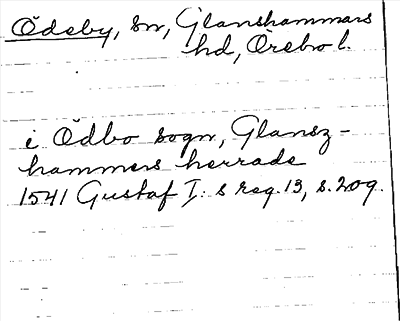 Ödeby, sn, Glanshammars
hd, Örebro l.
i Ödbo sogn, Glansz-
hammers herrade
1541 Gustaf I:s reg. 13, s. 209.